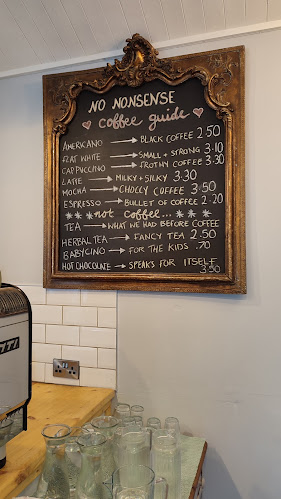 NO NONSENSE
coffee guide
AMERICANO → BLACK COFFEE 2.50
FLAT WHITE → SMALL + STRONG 3.10
CAPPUCCINO → FROTHY COFFEE 3.30
LATTE → MILKY + SILKY 3.30
MOCHA → CHOCCY COFFEE 3.50
ESPRESSO → BULLET OF COFFEE 2.20
*** not coffee... ***
TEA → WHAT WE HAD BEFORE COFFEE
HERBAL TEA → FANCY TEA 2.50
BABYCINO → FOR THE KIDS .70
HOT CHOCOLATE → SPEAKS FOR ITSELF
3.50